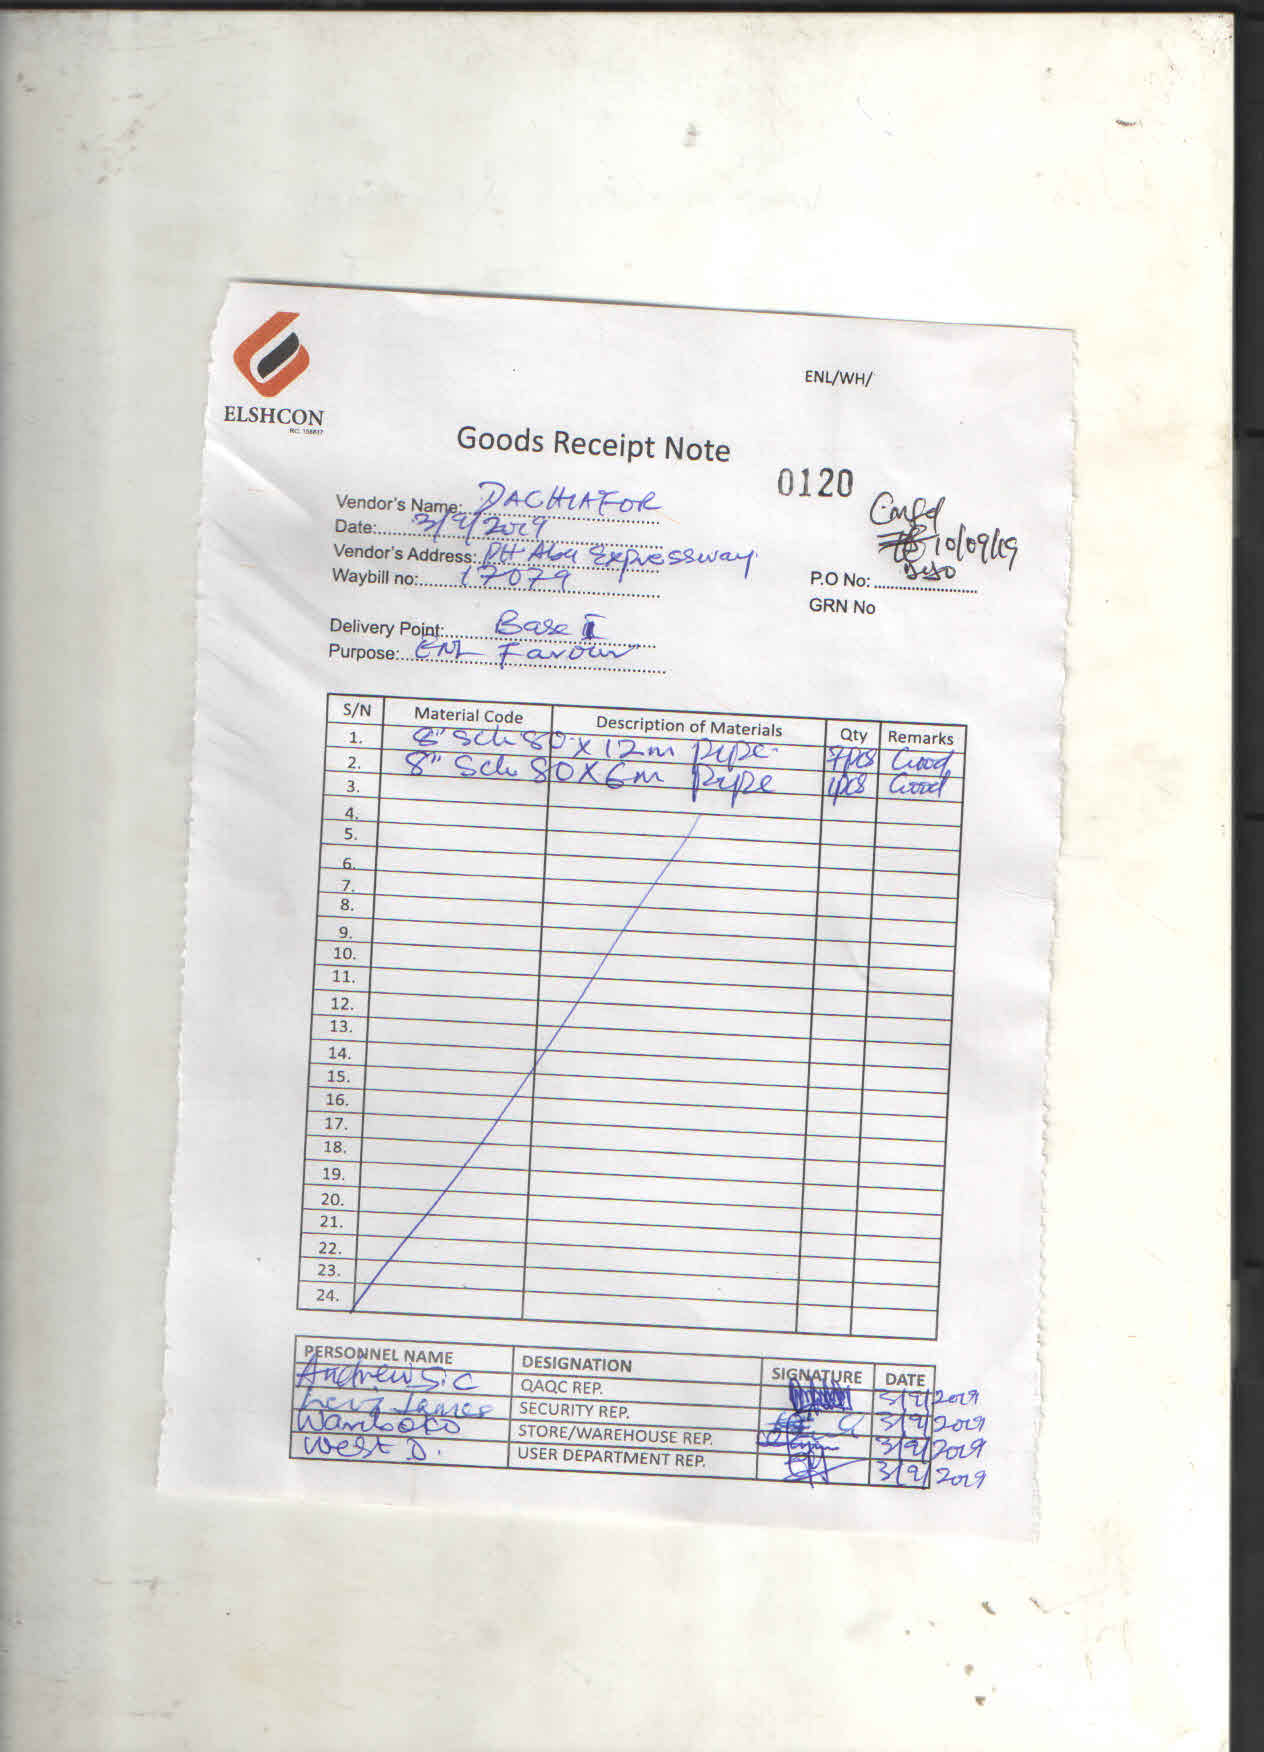 ENL/WH/
ELSHCON
RC: 158817
Goods Receipt Note
0120
Vendor's Name: DACHIAFOR
Date: 3/9/2019
10/09/19
Vendor's Address: PH Aba Expressway
Waybill no: 17079
P.O No:
GRN No
Delivery Point: Base I
Purpose: ENL Favour
S/N Material Code Description of Materials Qty Remarks
1. 8" Sch 80 X 12m pipe 7pcs Good
2. 8" Sch 80 X 6m pipe 1pcs Good
3.
4.
5.
6.
7.
8.
9.
10.
11.
12.
13.
14.
15.
16.
17.
18.
19.
20.
21.
22.
23.
24.
PERSONNEL NAME DESIGNATION SIGNATURE DATE
Andrew S.C QAQC REP. 3/9/2019
Levi James SECURITY REP. 3/9/2019
Wariboko STORE/WAREHOUSE REP. 3/9/2019
West D. USER DEPARTMENT REP. 3/9/2019